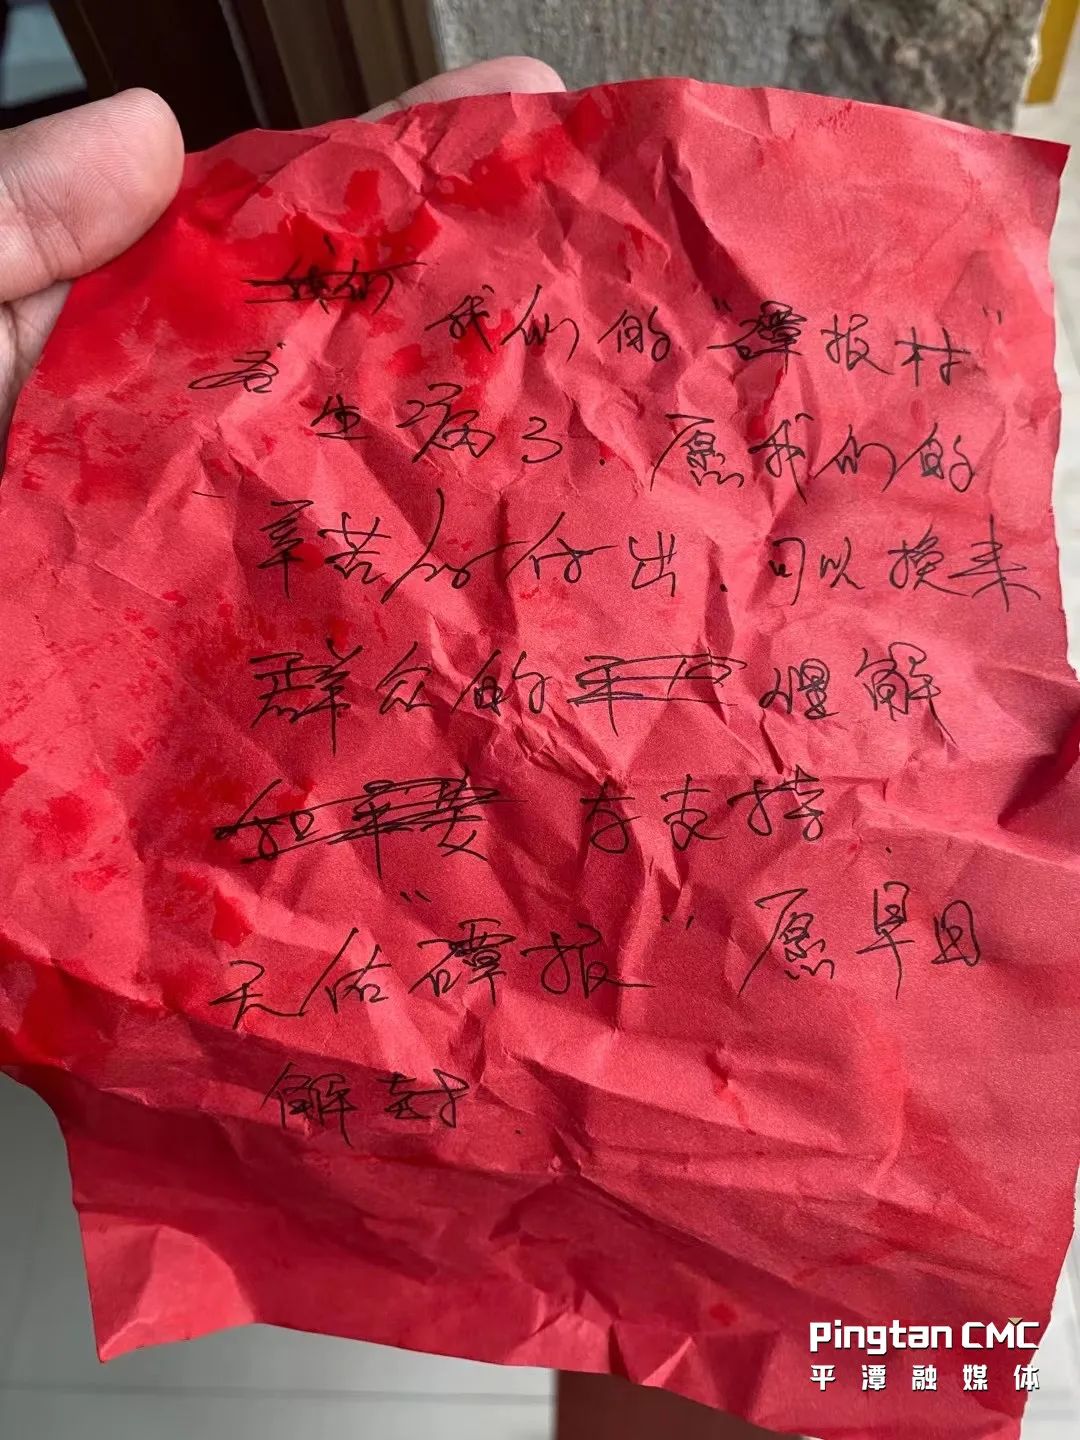 我们的“磹报村”
生病了.愿我们的
辛苦的付出.可以换来
群众的理解
与支持.
天佑“磹报”愿早日
解封.
Pingtan CMC
平潭融媒体